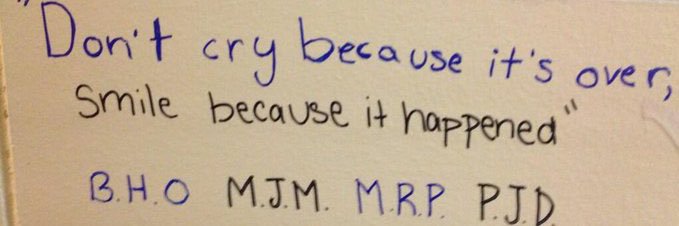 "Don't cry because it's over,
Smile because it happened"
B.H.O M.J.M. M.R.P. P.J.D.